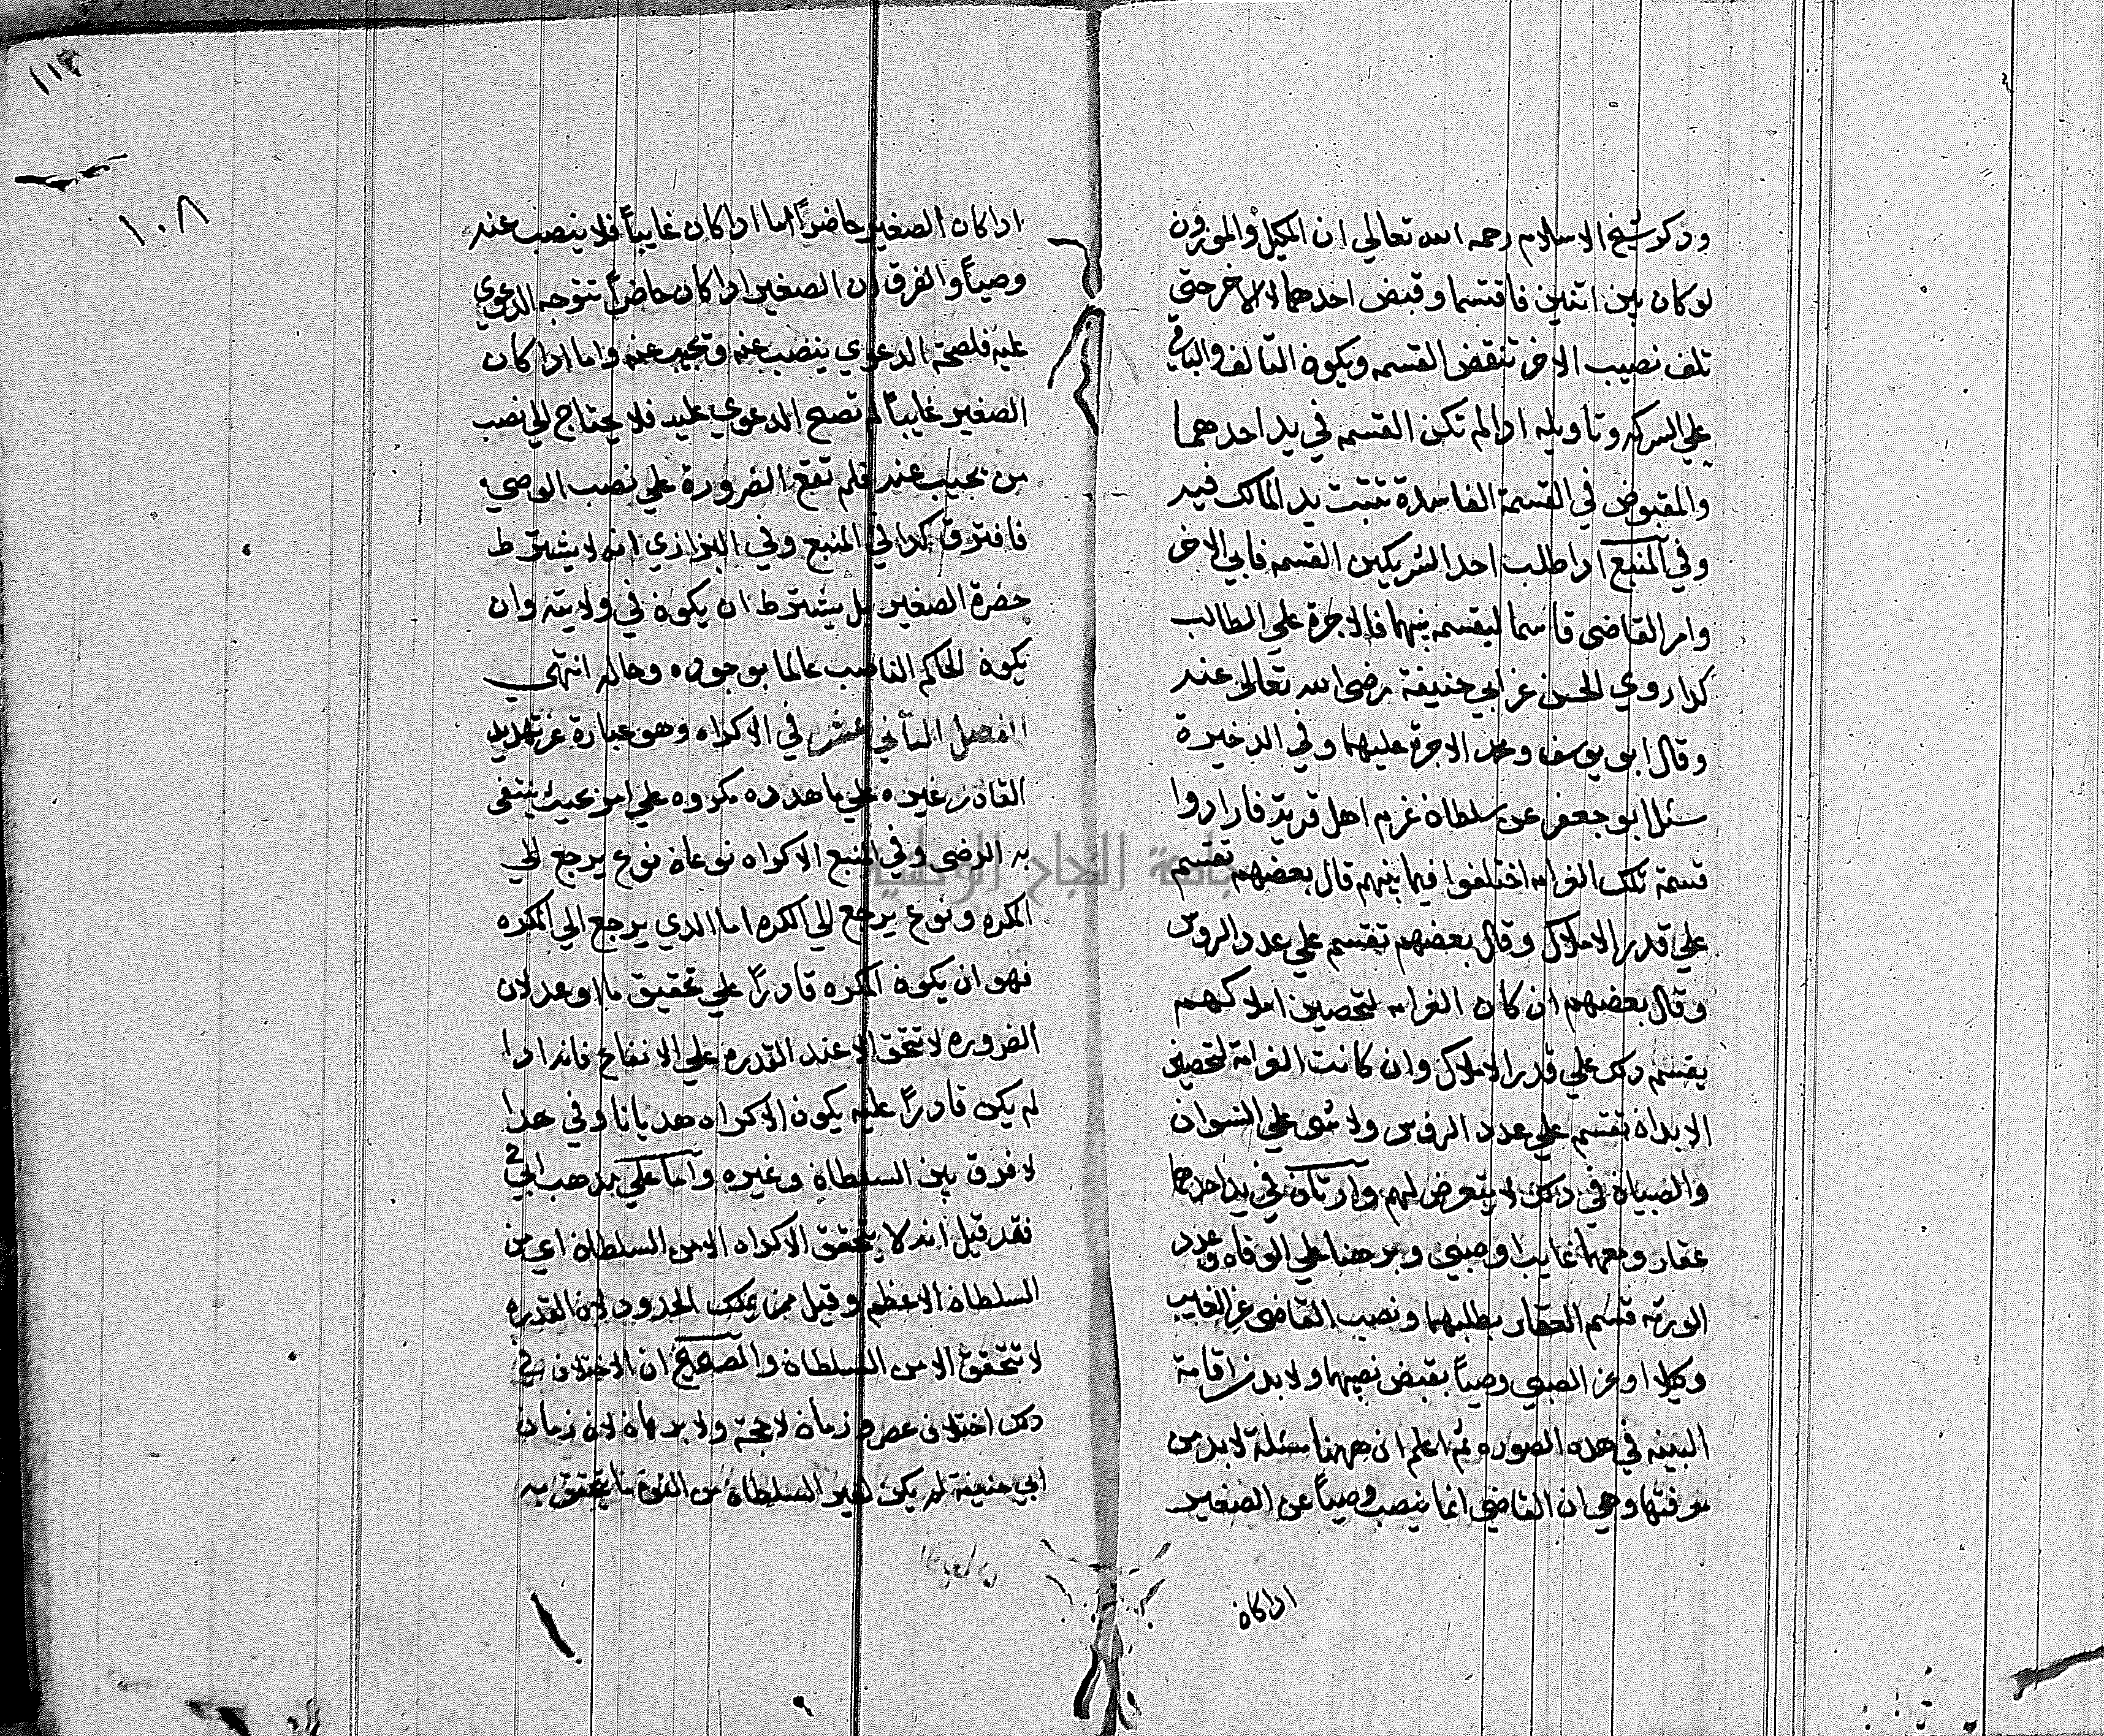 وذكر شيخ الاسلام رحمه الله تعالي ان المكيل والموزون
لو كان بين اثنين فاقتسما وقبض احدهما لا الاخر حتي
تلف نصيب الاخر تنقض القسمه ويكون التالف والباقي
علي الشركه وتاويله ادا لم تكن القسمه في يد احدهما
والمقبوض في القسمة الفاسدة تثبت يد المالك فيه
وفي المنبع ادا طلب احد الشريكين القسمه فابي الاخر
وامر القاضي قاسما ليقسمه بينهما فالاجرة علي الطالب
كدا روي الحسن عن ابي حنيفة رضي الله تعالي عنه
وقال ابو يوسف ومحمد الاجرة عليهما وفي الدخيرة
سئل ابو جعفر عن سلطان غرم اهل قرية فارادوا
قسمة تلك الغرامه اختلفوا فيما بينهم قال بعضهم تقسم
علي قدر الاملاك وقال بعضهم تقسم علي عدد الروس
وقال بعضهم ان كان الغرامه لتحصين املاكهم
يقسم دلك علي قدر الاملاك وان كانت الغرامة لتحصين
الابدان تقسم علي عدد الرؤس ولا شي علي النسوان
والصبيان في دلك لا يتعرض لهم وان كان في يد احدهما
عقار ومعهما غايب او صبي وبرهنا علي الوفاه وعدد
الورثه قسم العقار بطلبهما ونصب القاضي عن الغايب
وكيلا او عن الصبي وصياً بقبض نصيبهما ولا بد من اقامة
البينه في هده الصوره ثم اعلم ان ههنا مسئلة لا بد من
معرفتها وهي ان القاضي انما ينصب وصياً عن الصغير
اداكان
١١٢
١٠٨
اداكان الصغير حاضراً اما اداكان غايباً فلا ينصب عنه
وصياً والفرق ان الصغير اداكان حاضراً تتوجه الدعوي
عليه فلصحة الدعوي ينصب عنه وتجيب عنه واما اداكان
الصغير غايباً لم تصح الدعوي عليه فلا يحتاج الي نصب
من يجيب عنه فلم تقع الضرورة علي نصب الوصي
فافترق كدا في المنبع وفي البزازي انه لا يشترط
حضرة الصغير بل يشترط ان يكون في ولايته وان
يكون الحاكم الناصب عالما بوجوده وحاله انتهي
الفصل الثاني عشر في الاكراه وهو عبارة عن تهديد
القادر غيره علي ما هدده مكروه علي امر بحيث ينتفي
به الرضي وفي المنبع الاكراه نوعان نوع يرجع الي
المكره ونوع يرجع الي المكره اما الدي يرجع الي المكره
فهو ان يكون المكره قادراً علي تحقيق ما اوعد لان
الضروره لا تتحقق الا عند القدره علي الايقاع فانه ادا
لم يكن قادراً عليه يكون الاكراه هديانا وفي هدا
لا فرق بين السلطان وغيره واما علي مدهب ابي ح
فقد قيل انه لا يتحقق الاكراه الا من السلطان اي من
السلطان الاعظم وقيل ممن يملك الحدود لان القدره
لا تتحقق الا من السلطان والصحيح ان الاختلاف في
دلك اختلاف عصر وزمان لا حجة ولا برهان لان زمان
ابي حنيفة لم يكن لغير السلطان من القوة ما يتحقق به